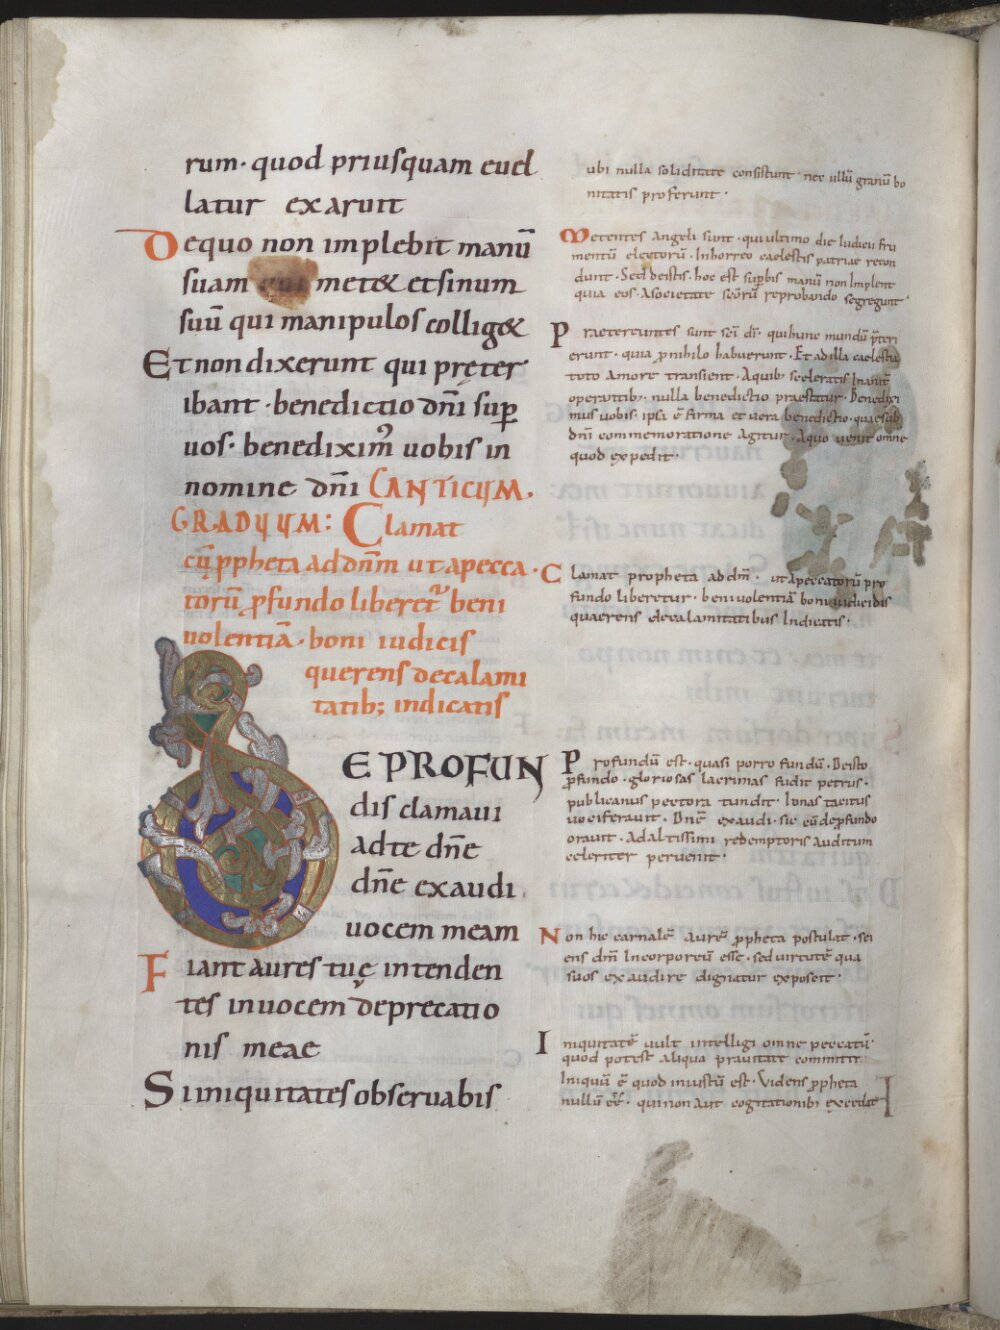 rum· quod priusquam euel
latur exaruit
De quo non implebit manū
suam qui met& et sinum
suū qui manipulos collig&
Et non dixerunt qui pręter
ibant · benedictio dn̄i sup̄
uos · benediximꝰ uobis in
nomine dn̄i CANTICUM.
GRADUUM: Clamat
cū ꝓpheta ad dn̄m ut apecca·
torū ꝓfundo liberet᷑ beni
uolentiā · boni iudicis
querens de calami
tatib; indicatis
DE PROFUN
dis clamaui
ad te dn̄e
dn̄e exaudi
uocem meam
Fiant aures tuę intenden
tes in uocem deprecatio
nis meae
Si iniquitates obseruabis
ubi nulla soliditate consistunt · nec ullū granū bo
nitatis proferunt ·
Metentes angeli sunt · qui ultimo die iudicii fru
mentū electorū · In horreo caelestis patriae recon
dunt · Sed de istis · hoc est supbis manū non Implent
quia eos · A societate scōrū reprobando segregunt ·
Praetereuntes sunt sc̄i dī · qui hunc mundū p̄teri
erunt · quia ꝓ nihilo habuerunt · Et ad illa caelestia
toto amore transient · A quib; sceleratis Inanit̄
operantib; nulla benedictio praestatur · Benedixi
mus uobis · ipsa ē firma et uera benedictio · quae sub
dn̄i commemoratione agitur · A quo uenit omne
quod expedit ·
Clamat propheta ad dm̄ · ut a peccatorū pro
fundo liberetur · beniuolentiā boni iudicis
quaerens de calamitatibus Indicatis ·
Profundū est · quasi porro fundū · De isto
ꝓfundo · gloriosas lacrimas fudit petrus ·
publicanus pectora tundit · Ionas tacitus
uociferauit · Dn̄e exaudi · sic eū de ꝓfundo
orauit · Ad altissimi redemptoris auditum
celeriter peruenit ·
Non hic carnalē aurē ꝓpheta postulat · sci
ens dm̄ Incorporeū esse · sed uirtutē qua
suos exaudire dignatur exposcit ·
Iniquitatē uult intelligi omne peccatū ·
quod potest aliqua prauitate committi
Iniquū ē quod iniustū est · Videns ꝓpheta
nullū eē · qui non aut cogitationib; excedat